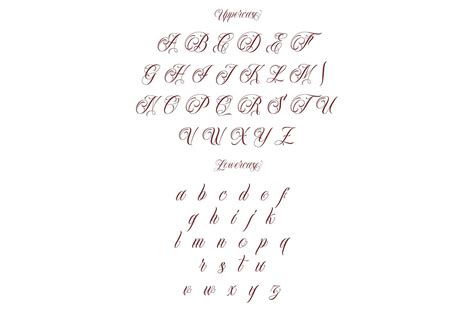 Uppercase
A B C D E F
G H I J K L M
N O P Q R S T U
V W X Y Z
Lowercase
a b c d e f
g h i j k
l m n o p q
r s t u
v w x y z